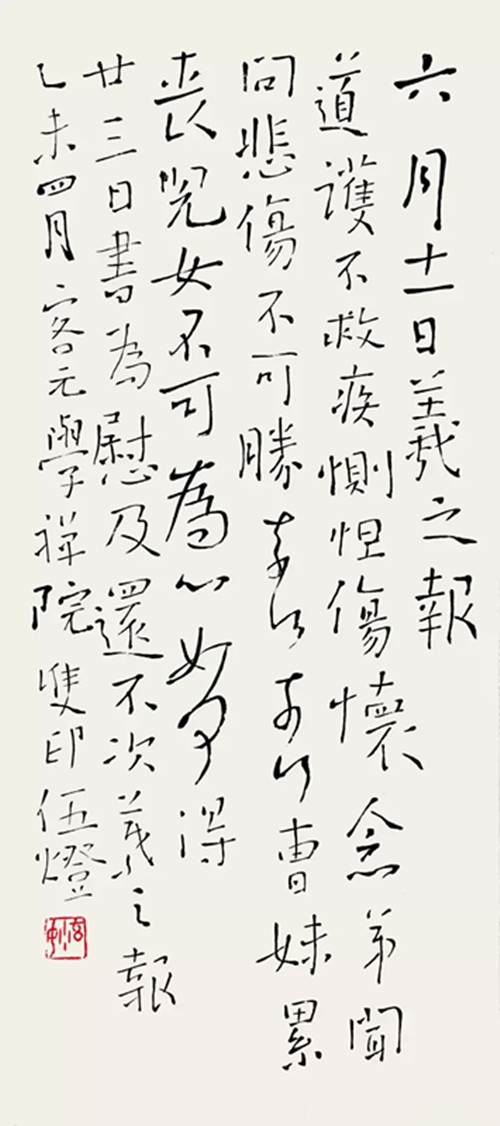 六月十一日羲之報
道護不救疾惻怛傷懷念弟聞
問悲傷不可勝奈何奈何曹妹累
喪兒女不可為心如何得
廿三日書為慰及還不次羲之報
乙未四月客元學禅院雙印伍燈